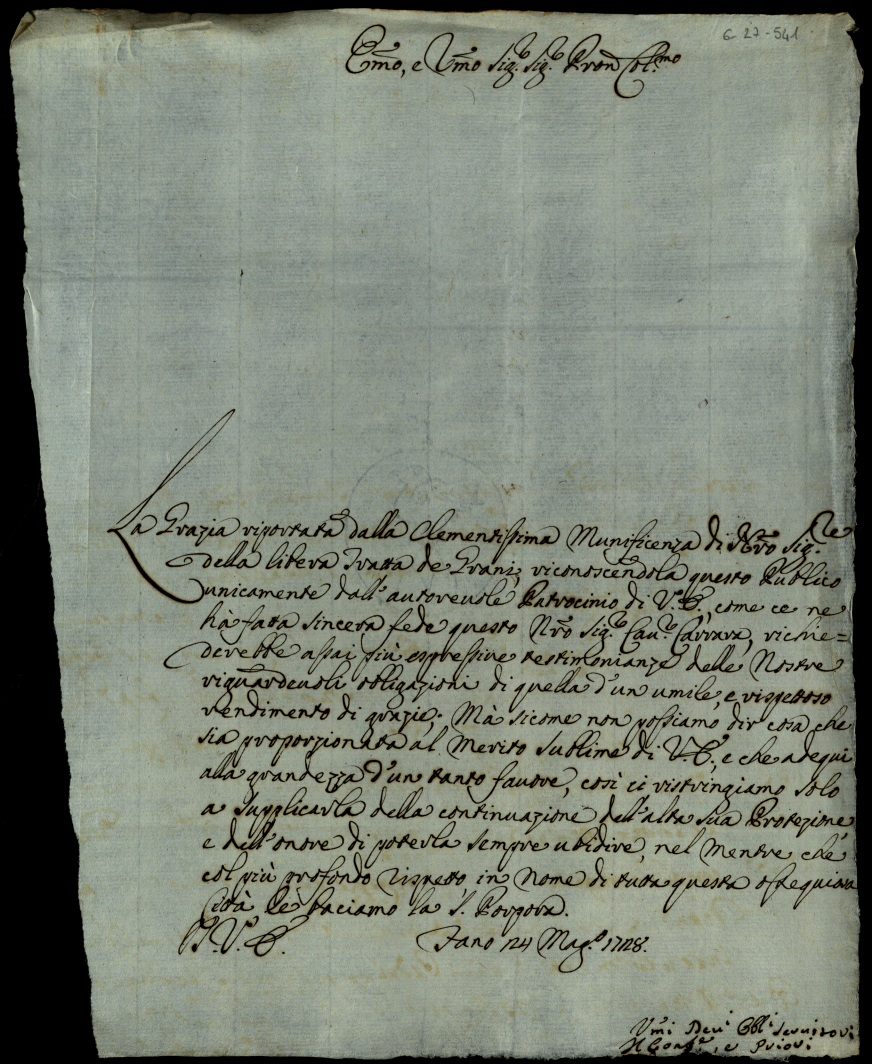 6-27-541
Em̃o, e Rm̃o Sig.r Sig.r Pron Col.mo
La Grazia riportata dalla Clementissima Munificenza di Nr̃o Sig.re
della libera Tratta de Grani, riconoscendola questo Publico
unicamente dall'autoreuole Patrocinio di V.E., come ce ne
hà fatta sincera fede questo Nr̃o Sig.r Cau.r Carrara, richie=
derebbe assai più espressive testimonianze delle Nostre
riguardeuoli obligazioni di quella d'un umile, e rispettoso
rendimento di grazie; Mà sicome non possiamo dir cosa che
sia proporzionata al Merito sublime di V.E., e che adegui
alla grandezza d'un tanto fauore, così ci ristringiamo solo
a supplicarla della continuazione dell'alta sua Protezione
e dell'onore di poterla sempre ubidire, nel mentre che
col più profondo rispetto in nome di tutta questa ossequiosa
Città Le baciamo la S. Porpora.
D.V.E. Fano 24 Mag.o 1728.
Vm̃i Deu.i Obl.i Seruitori
Il Conf.e, e Priori